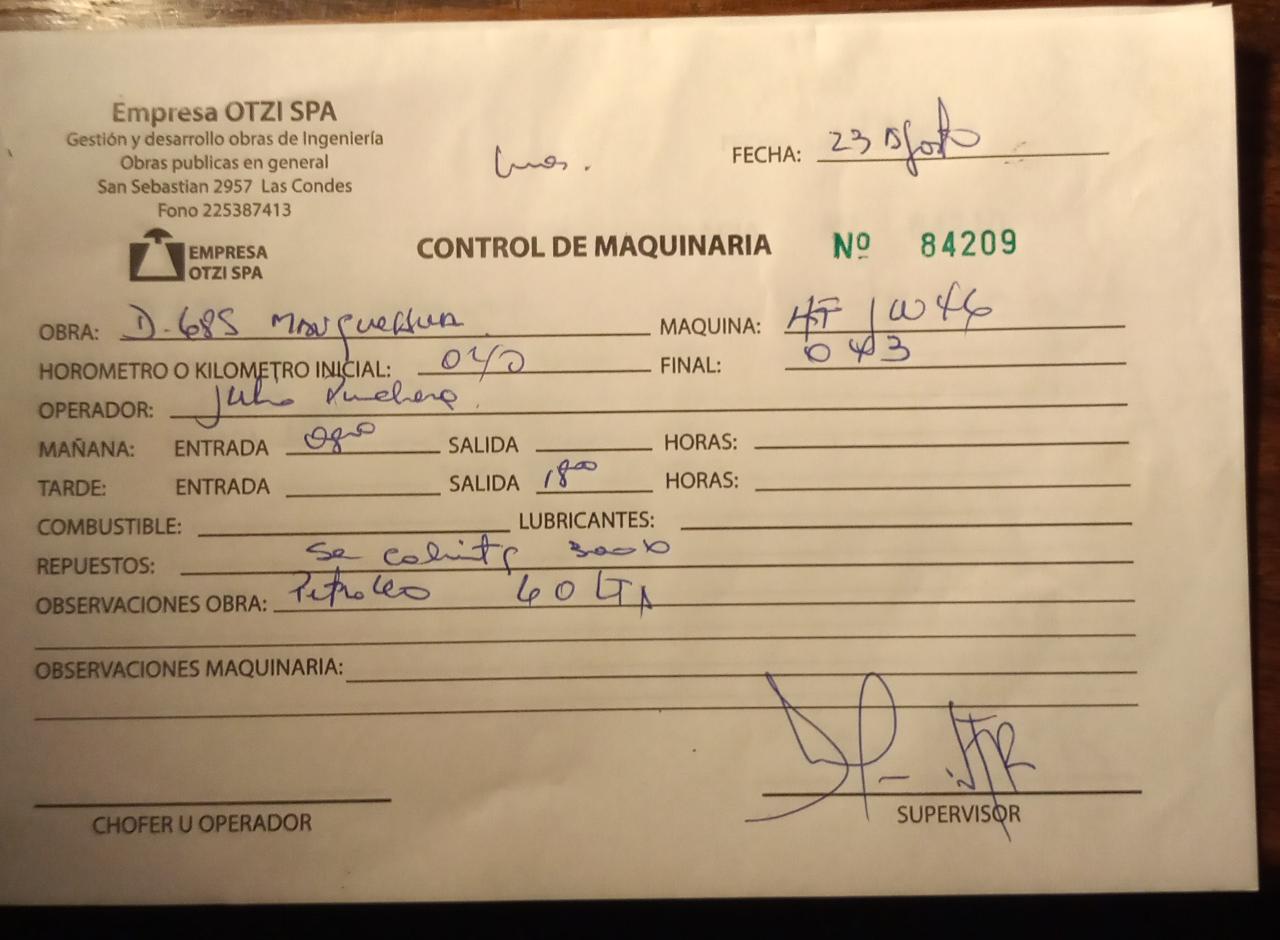 Empresa OTZI SPA
Gestión y desarrollo obras de Ingeniería
Obras publicas en general
San Sebastian 2957 Las Condes
Fono 225387413
FECHA: 23 Agosto
EMPRESA
OTZI SPA
CONTROL DE MAQUINARIA Nº 84209
OBRA: D-685 MAQUINA:
HOROMETRO O KILOMETRO INICIAL: 040 FINAL: 043
OPERADOR: Julio
MAÑANA: ENTRADA 0800 SALIDA HORAS:
TARDE: ENTRADA SALIDA 1800 HORAS:
COMBUSTIBLE: LUBRICANTES:
REPUESTOS: Se
OBSERVACIONES OBRA: Petroleo 60 LT
OBSERVACIONES MAQUINARIA:
CHOFER U OPERADOR
SUPERVISOR